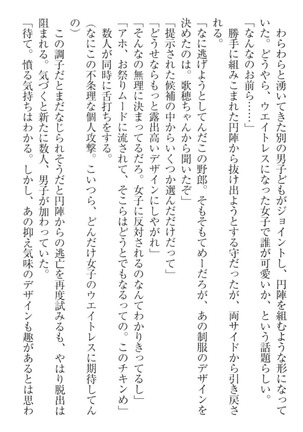 わらわらと湧いてきた別の男子どもがジョイントし、円陣を組むような形になって
いた。どうやら、ウエイトレスになった女子で誰が可愛いか、という話題らしい。
「なんなのお前ら……」
勝手に組みこまれた円陣から抜け出ようとする守だったが、両サイドから引き戻さ
れる。
「なに逃げようとしてんだこの野郎。そもそもてめーだろが、あの制服のデザインを
決めたのは。歌穂ちゃんから聞いたぞ」
「提示された候補の中からいくつか選んだだけだって」
「どうせならもっと露出高いデザインにしやがれ」
「そんなの無理に決まってるだろ。女子に反対されるのなんてわかりきってるし」
「アホ、お祭りムードに流されて、そこらはどうとでもなるっての。このチキンめ」
数人が同時に舌打ちをする。
(なにこの不条理な個人攻撃。こいつら、どんだけ女子のウエイトレスに期待してん
だよ)
この調子だとまだなじられそうだと円陣からの逃亡を再度試みるも、やはり脱出は
阻まれる。気づくと新たに数人、男子が加わっていた。
「待て。憤る気持ちはわかる。しかし、あの抑え気味のデザインも趣があるとは思わ